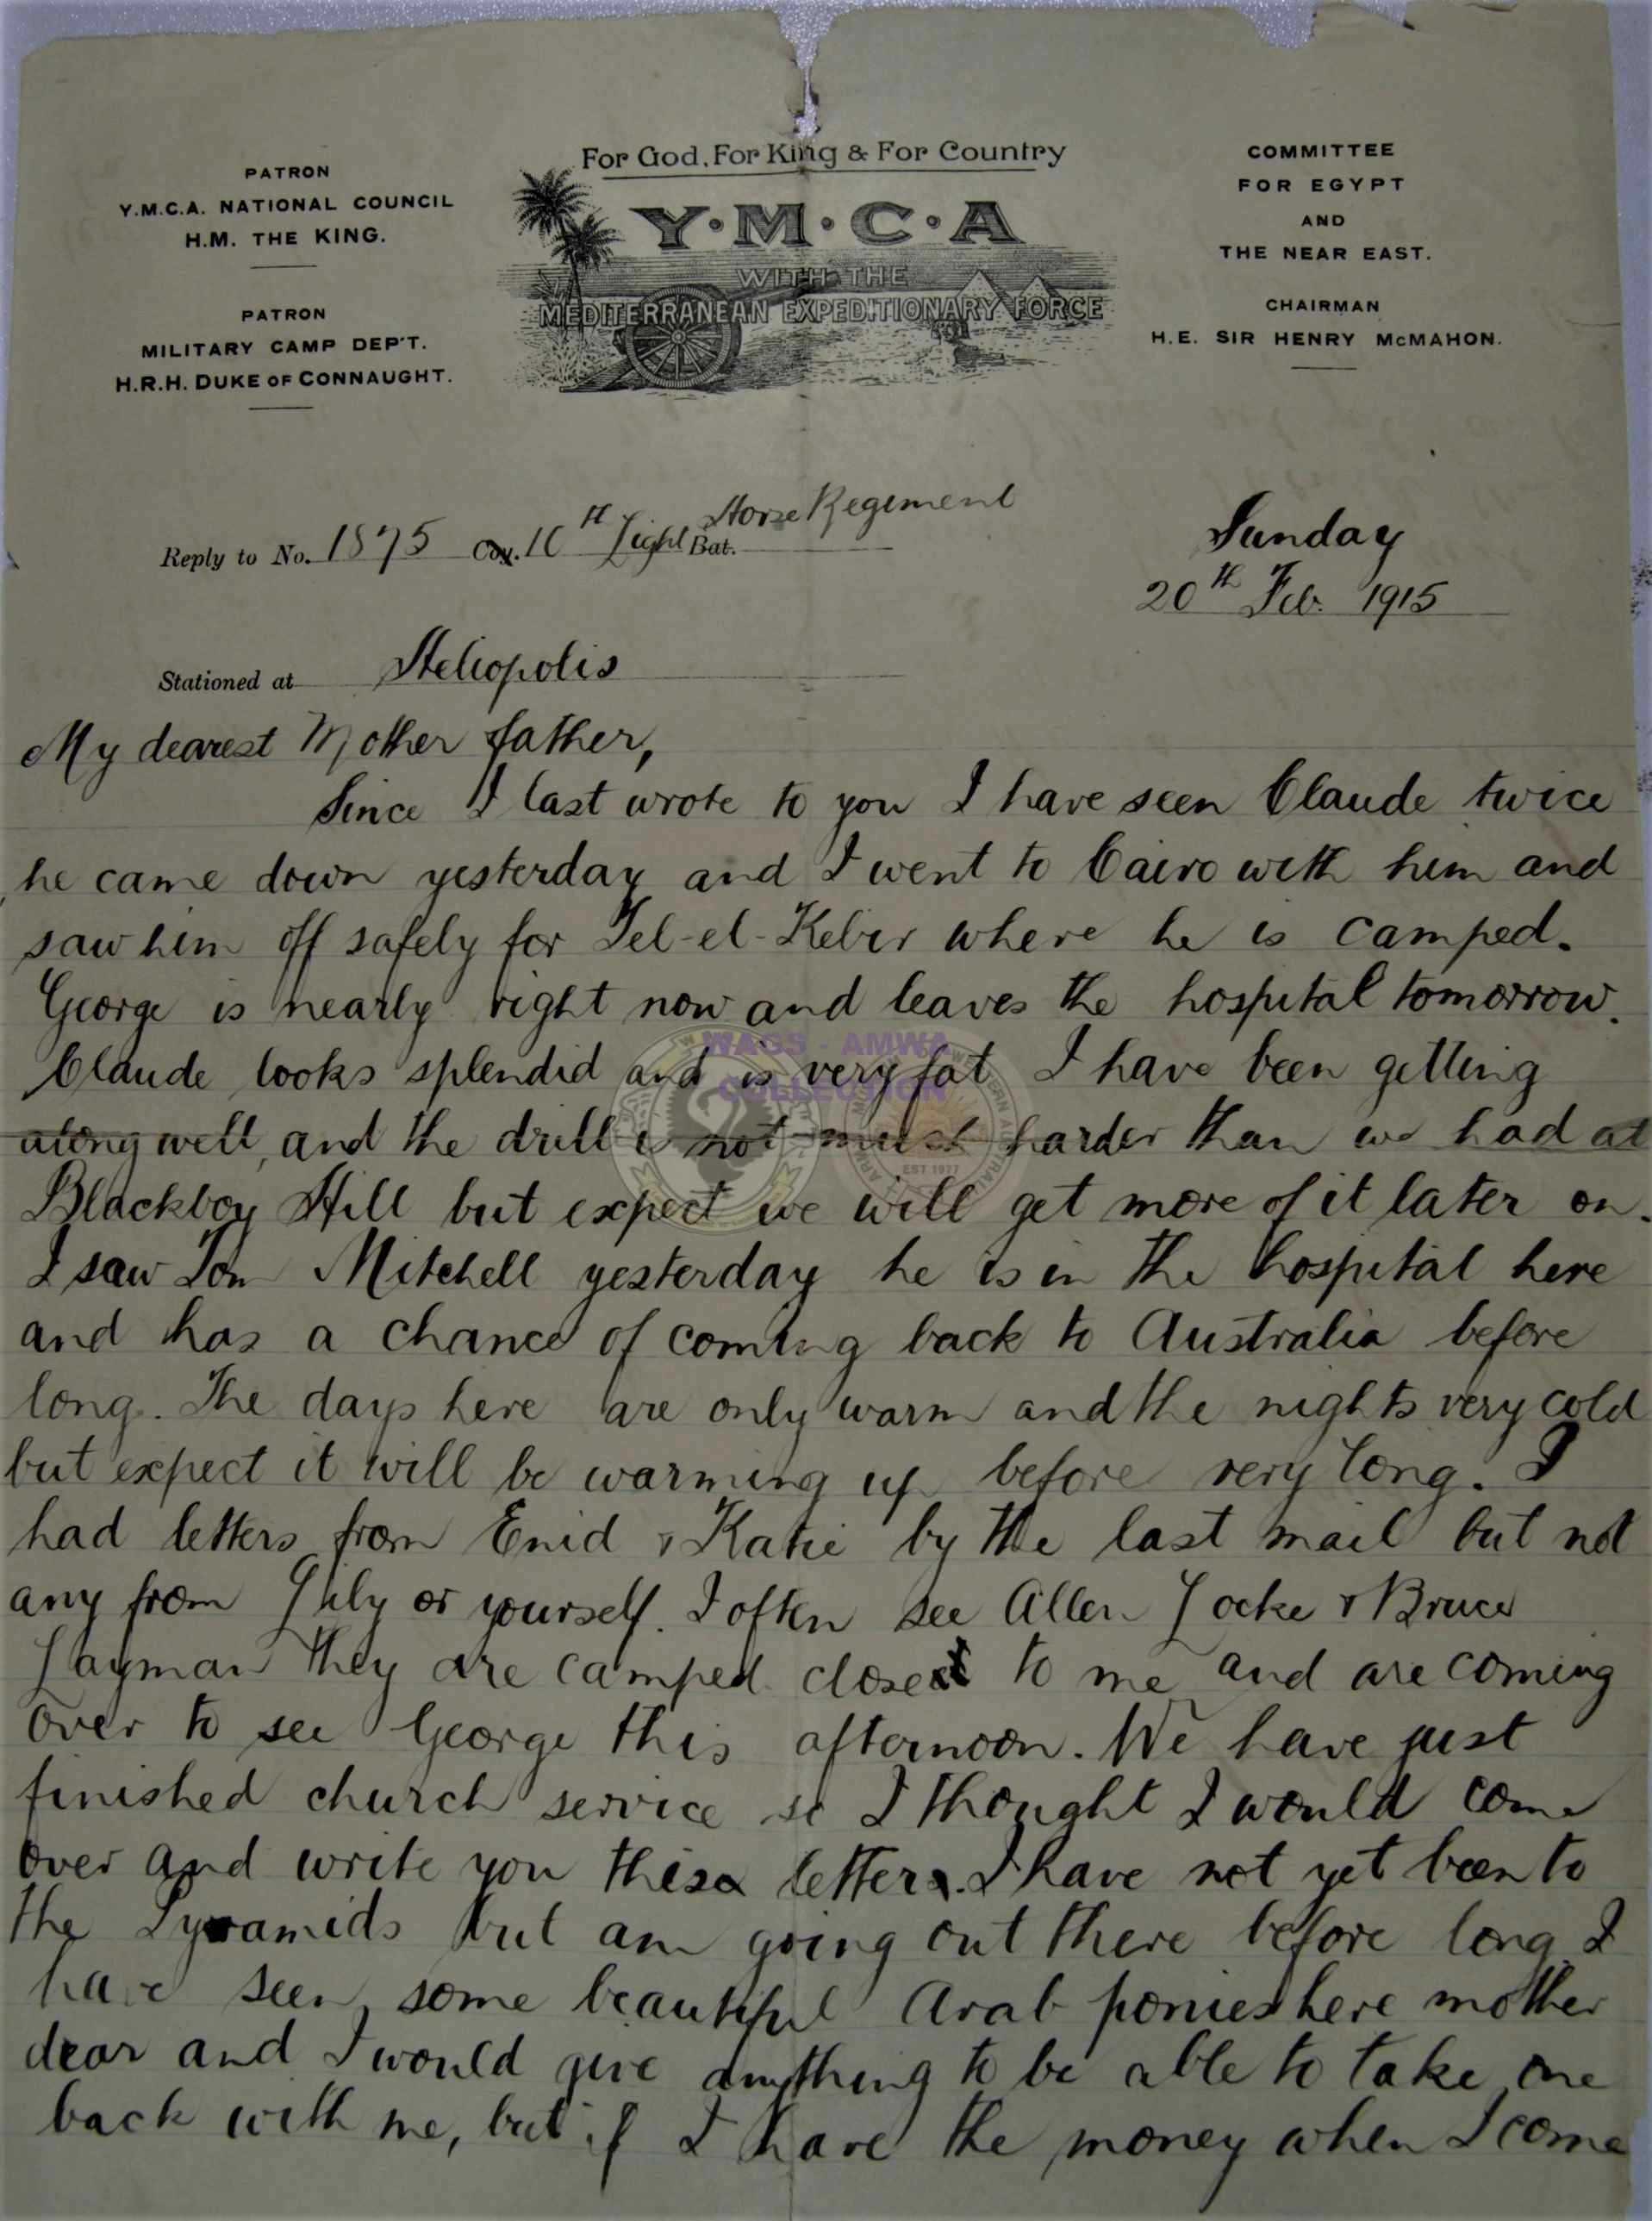 For God, For King & For Country
PATRON
Y.M.C.A. NATIONAL COUNCIL
H.M. THE KING.
PATRON
MILITARY CAMP DEP'T.
H.R.H. DUKE OF CONNAUGHT.
Y.M.C.A
WITH THE
MEDITERRANEAN EXPEDITIONARY FORCE
COMMITTEE
FOR EGYPT
AND
THE NEAR EAST.
CHAIRMAN
H.E. SIR HENRY McMAHON.
Reply to No. 1875 Coy. 10th Light Bat. Horse Regiment
Sunday
20th Feb. 1915
Stationed at Heliopolis
My dearest Mother father,
Since I last wrote to you I have seen Claude twice
he came down yesterday and I went to Cairo with him and
saw him off safely for Tel-el-Keber where he is camped.
George is nearly right now and leaves the hospital tomorrow.
Claude looks splendid and is very fat I have been getting
along well, and the drill is not much harder than we had at
Blackboy Hill but expect we will get more of it later on.
I saw Tom Mitchell yesterday he is in the hospital here
and has a chance of coming back to Australia before
long. The days here are only warm and the nights very cold
but expect it will be warming up before very long. I
had letters from Enid & Katie by the last mail but not
any from Lily or yourself. I often see Allen Locke & Bruce
Layman they are camped close to me and are coming
over to see George this afternoon. We have just
finished church service so I thought I would come
over and write you these letters. I have not yet been to
the Pyramids but am going out there before long I
have seen some beautiful Arab ponies here mother
dear and I would give anything to be able to take one
back with me, but if I have the money when I come
WAGS - AMWA
COLLECTION
EST 1977